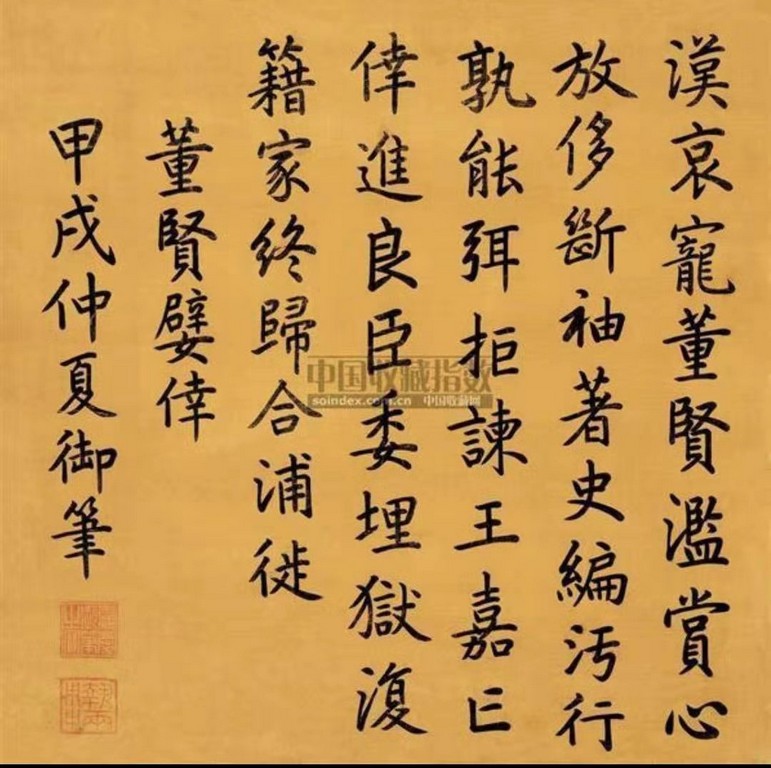 漢哀寵董賢濫賞心
放侈斷袖著史編汚行
孰能弭拒諫王嘉亡
倖進良臣委埋獄復
籍家終歸合浦徙
董賢嬖倖
甲戌仲夏御筆
中国收藏指数
soindex.com.cn 中国收藏网